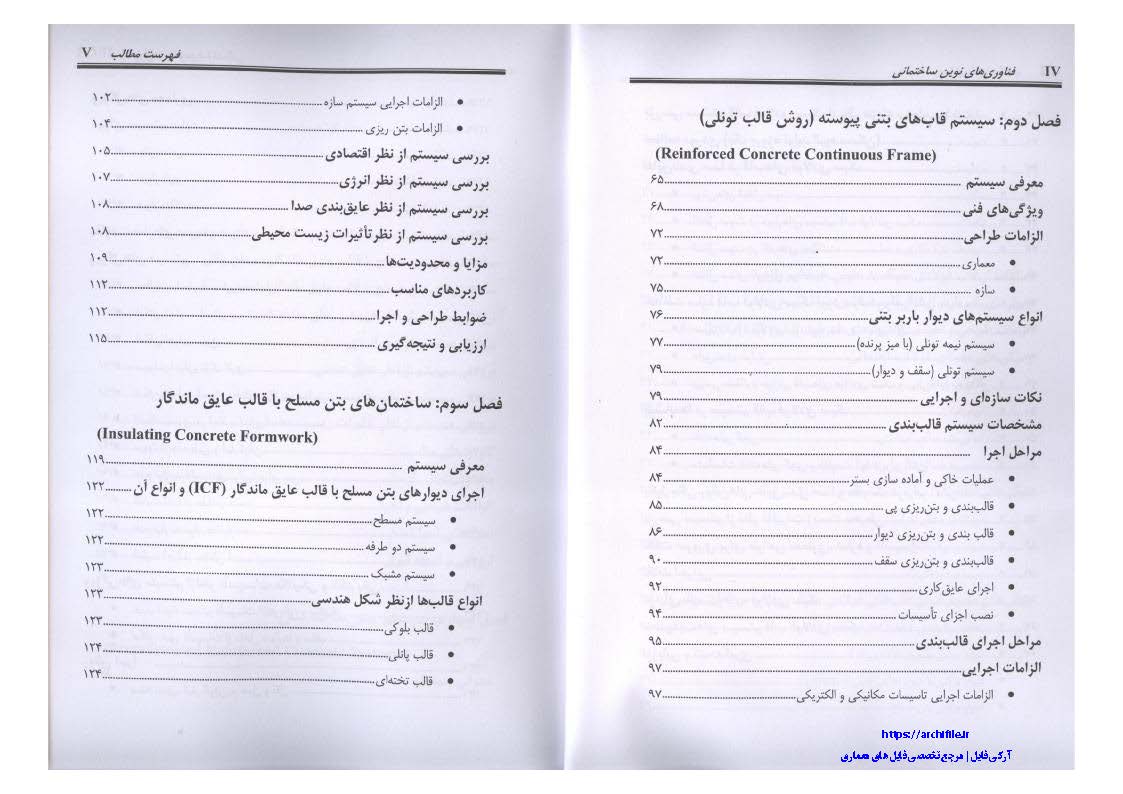 IV فناوری‌های نوین ساختمانی
فصل دوم: سیستم قاب‌های بتنی پیوسته (روش قالب تونلی)
(Reinforced Concrete Continuous Frame)
معرفی سیستم ........ ۶۵
ویژگی‌های فنی ........ ۶۸
الزامات طراحی ........ ۷۲
• معماری ........ ۷۲
• سازه ........ ۷۵
انواع سیستم‌های دیوار باربر بتنی ........ ۷۶
• سیستم نیمه تونلی (با میز پرنده) ........ ۷۷
• سیستم تونلی (سقف و دیوار) ........ ۷۹
نکات سازه‌ای و اجرایی ........ ۷۹
مشخصات سیستم قالب‌بندی ........ ۸۲
مراحل اجرا ........ ۸۴
• عملیات خاکی و آماده سازی بستر ........ ۸۴
• قالب‌بندی و بتن‌ریزی پی ........ ۸۵
• قالب بندی و بتن‌ریزی دیوار ........ ۸۶
• قالب‌بندی و بتن‌ریزی سقف ........ ۹۰
• اجرای عایق‌کاری ........ ۹۲
• نصب اجزای تأسیسات ........ ۹۴
مراحل اجرای قالب‌بندی ........ ۹۵
الزامات اجرایی ........ ۹۷
• الزامات اجرایی تاسیسات مکانیکی و الکتریکی ........ ۹۷
فهرست مطالب V
• الزامات اجرایی سیستم سازه ........ ۱۰۲
• الزامات بتن ریزی ........ ۱۰۴
بررسی سیستم از نظر اقتصادی ........ ۱۰۵
بررسی سیستم از نظر انرژی ........ ۱۰۷
بررسی سیستم از نظر عایق‌بندی صدا ........ ۱۰۸
بررسی سیستم از نظر تأثیرات زیست محیطی ........ ۱۰۸
مزایا و محدودیت‌ها ........ ۱۰۹
کاربردهای مناسب ........ ۱۱۲
ضوابط طراحی و اجرا ........ ۱۱۲
ارزیابی و نتیجه‌گیری ........ ۱۱۵
فصل سوم: ساختمان‌های بتن مسلح با قالب عایق ماندگار
(Insulating Concrete Formwork)
معرفی سیستم ........ ۱۱۹
اجرای دیوارهای بتن مسلح با قالب عایق ماندگار (ICF) و انواع آن ........ ۱۲۲
• سیستم مسطح ........ ۱۲۲
• سیستم دو طرفه ........ ۱۲۲
• سیستم مشبک ........ ۱۲۳
انواع قالب‌ها ازنظر شکل هندسی ........ ۱۲۳
• قالب بلوکی ........ ۱۲۳
• قالب پانلی ........ ۱۲۴
• قالب تخته‌ای ........ ۱۲۴
https://archifile.ir
آرکی فایل | مرجع تخصصی فایل های معماری